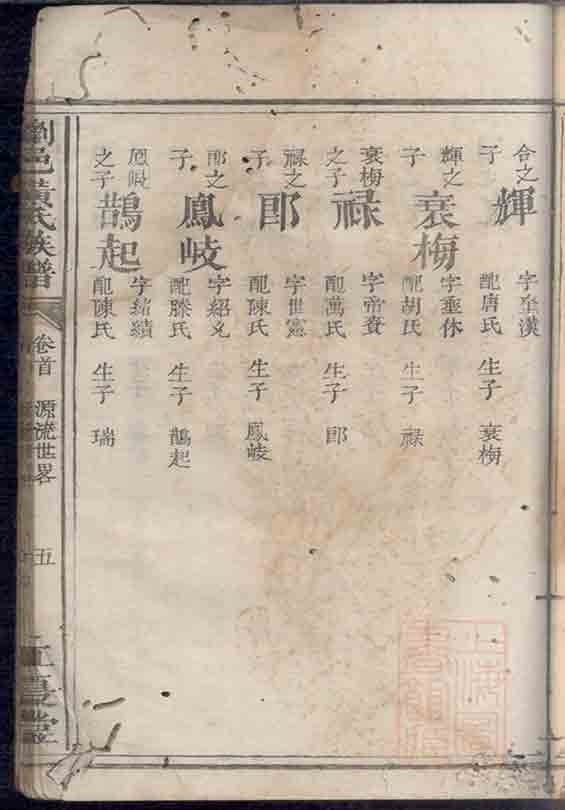 合之子
輝
字奎漢
配唐氏 生子 衰梅
輝之子
衰梅
字垂休
配胡氏 生子 祿
衰梅之子
祿
字帝賚
配萬氏 生子 郎
祿之子
郎
字世憲
配陳氏 生子 鳳岐
郎之子
鳳岐
字紹爻
配滕氏 生子 鵲起
鳳岐之子
鵲起
字緒績
配陳氏 生子 瑞
瀏邑黃氏族譜
卷首 源流世畧
五